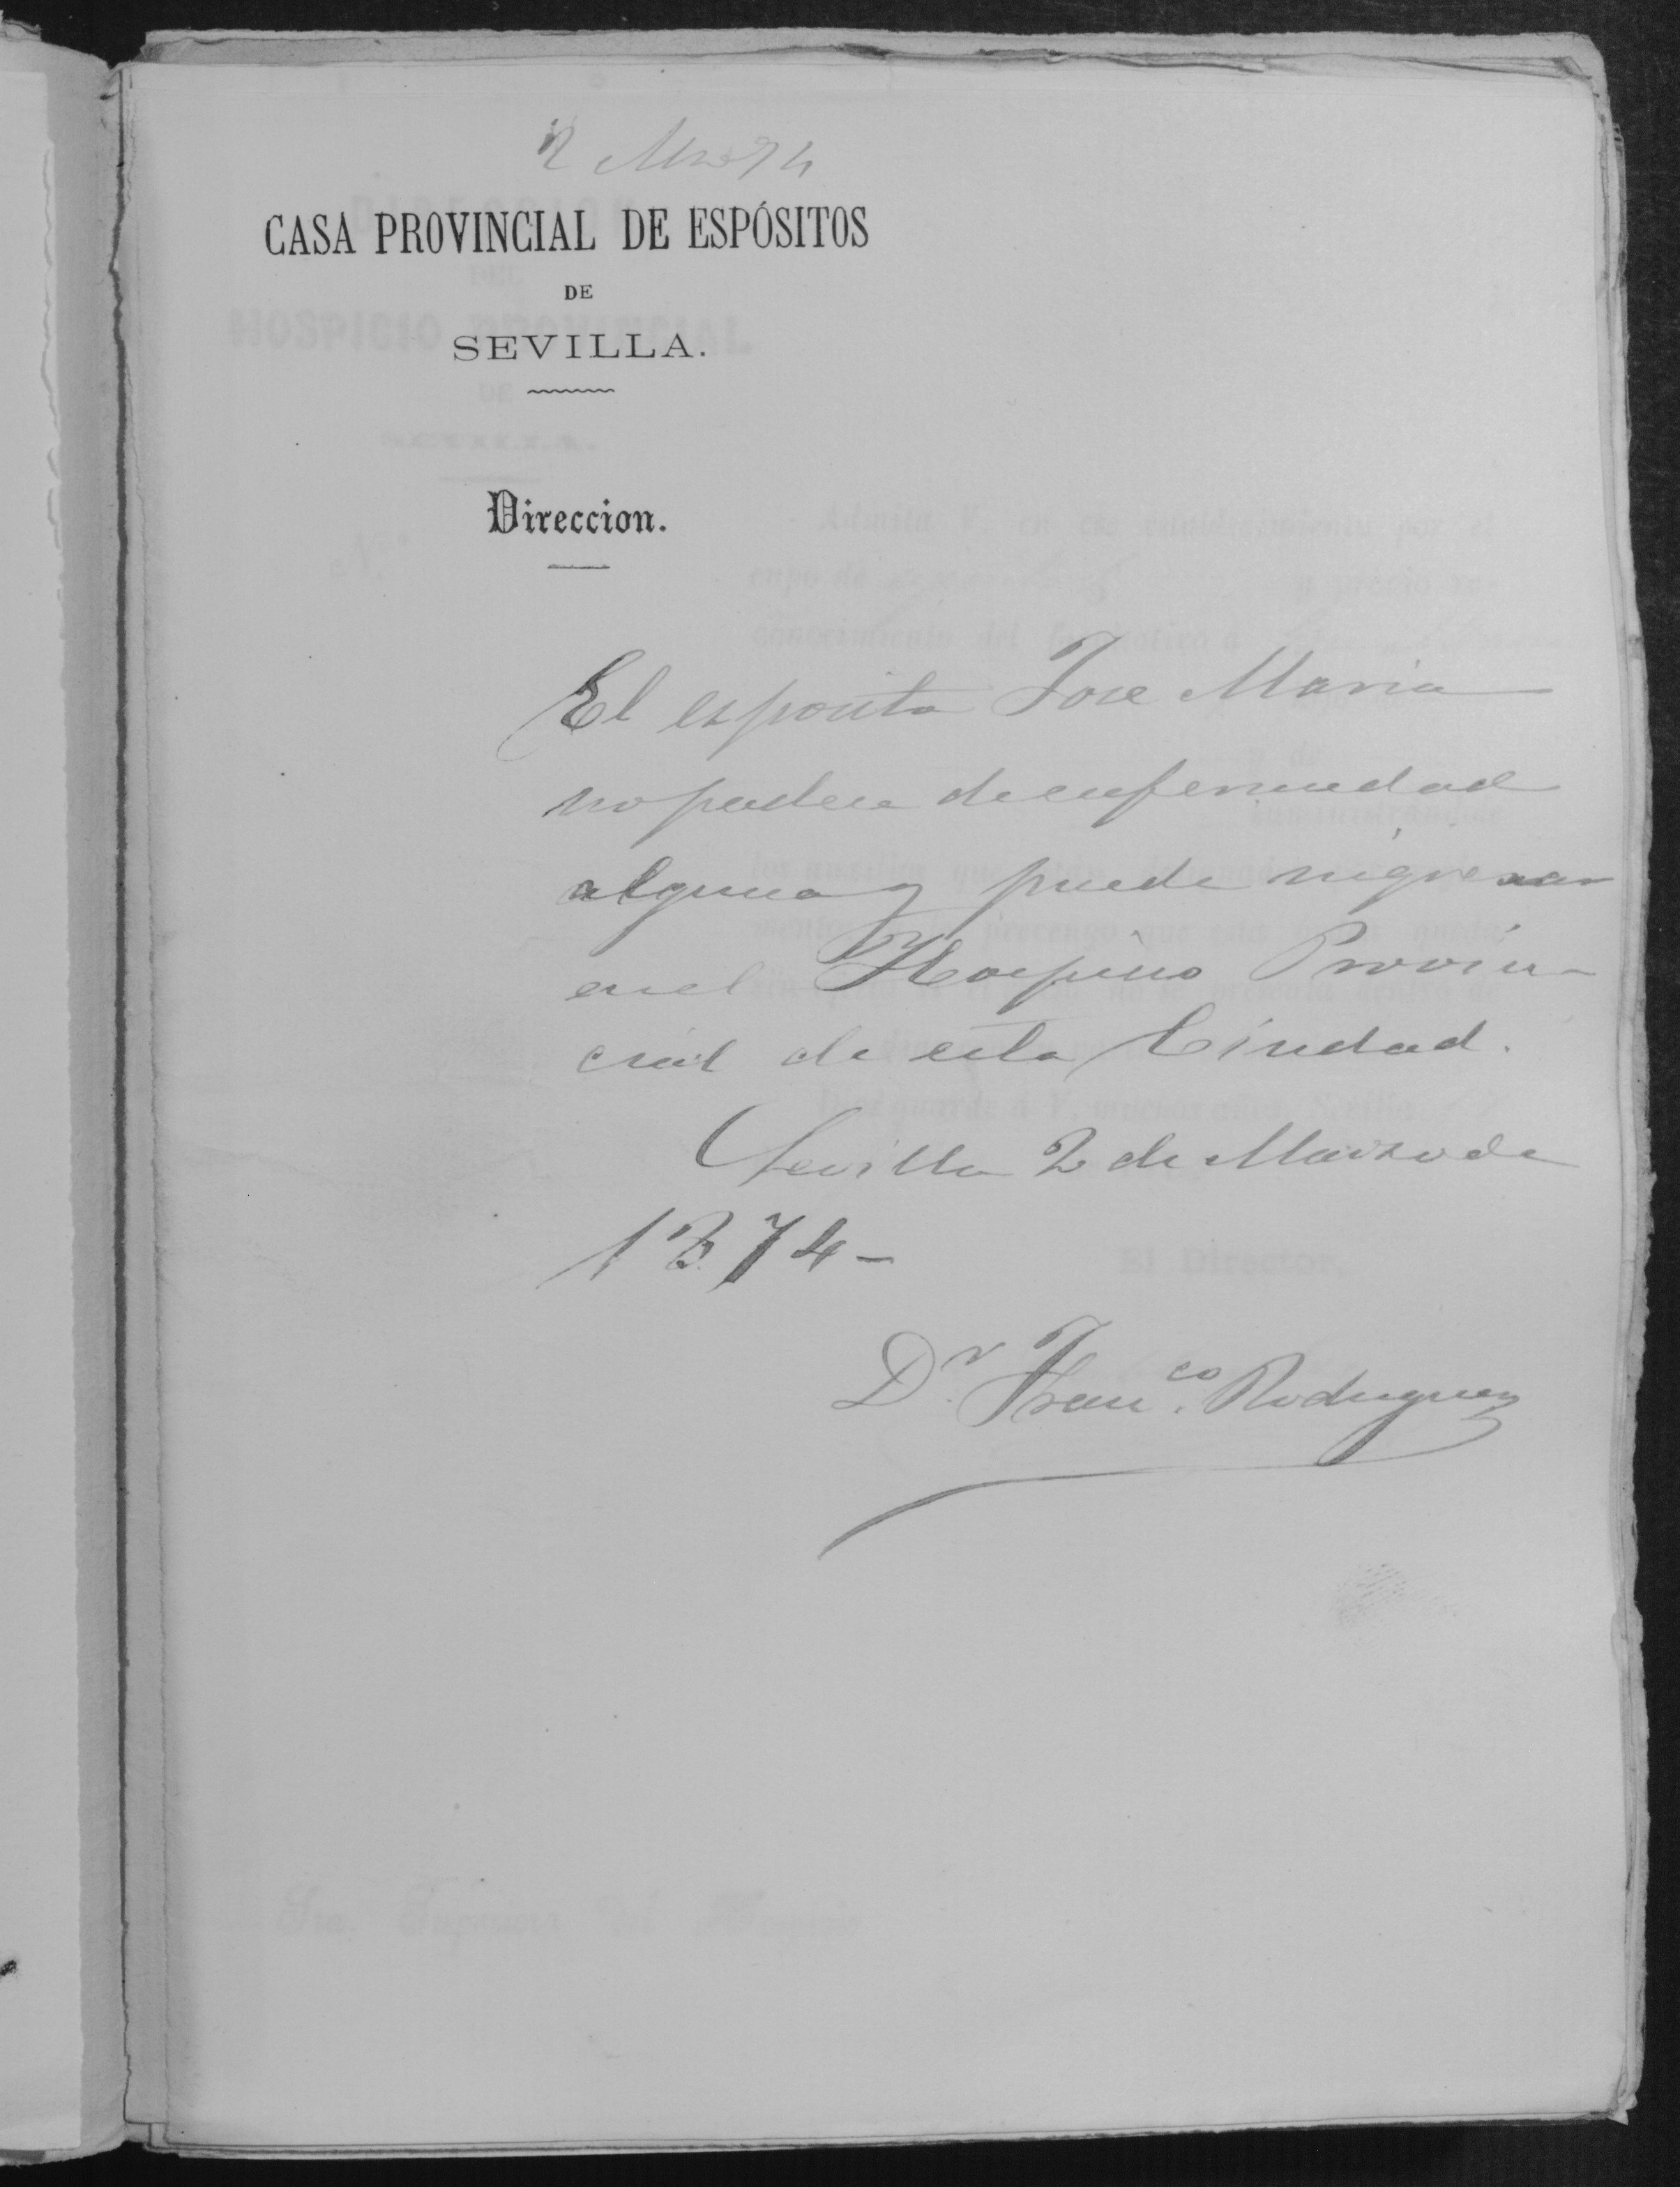 2 Mzo 74
CASA PROVINCIAL DE ESPÓSITOS
DE
SEVILLA.
Direccion.
El esposito Jose Maria
no padece de enfermedad
alguna y puede ingresar
en el Hospicio Provin-
cial de esta Ciudad.
Sevilla 2 de Marzo de
1874-
Dr. Franco. Rodriguez